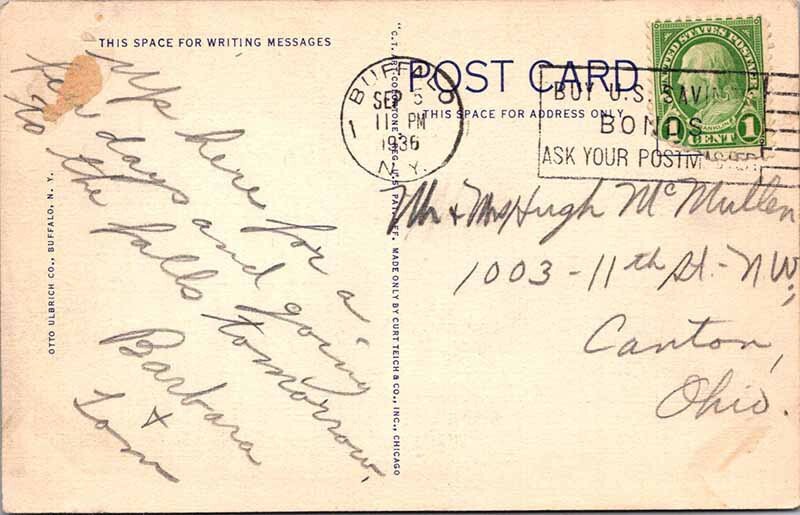 THIS SPACE FOR WRITING MESSAGES
Up here for a
few days and going
to the falls tomorrow,
Barbara
+
Tom
OTTO ULBRICH CO., BUFFALO, N. Y.
"C.T. ART-COLORTONE" REG. U.S. PAT. OFF. MADE ONLY BY CURT TEICH & CO., INC., CHICAGO
POST CARD
THIS SPACE FOR ADDRESS ONLY
BUFFALO
1
SEP 5
11 PM
1936
N.Y.
8
BUY U.S. SAVINGS
BONDS
ASK YOUR POSTM
UNITED STATES POSTAGE
FRANKLIN
1 CENT 1
Mr & Mrs Hugh McMullen
1003-11th St.-NW;
Canton,
Ohio.